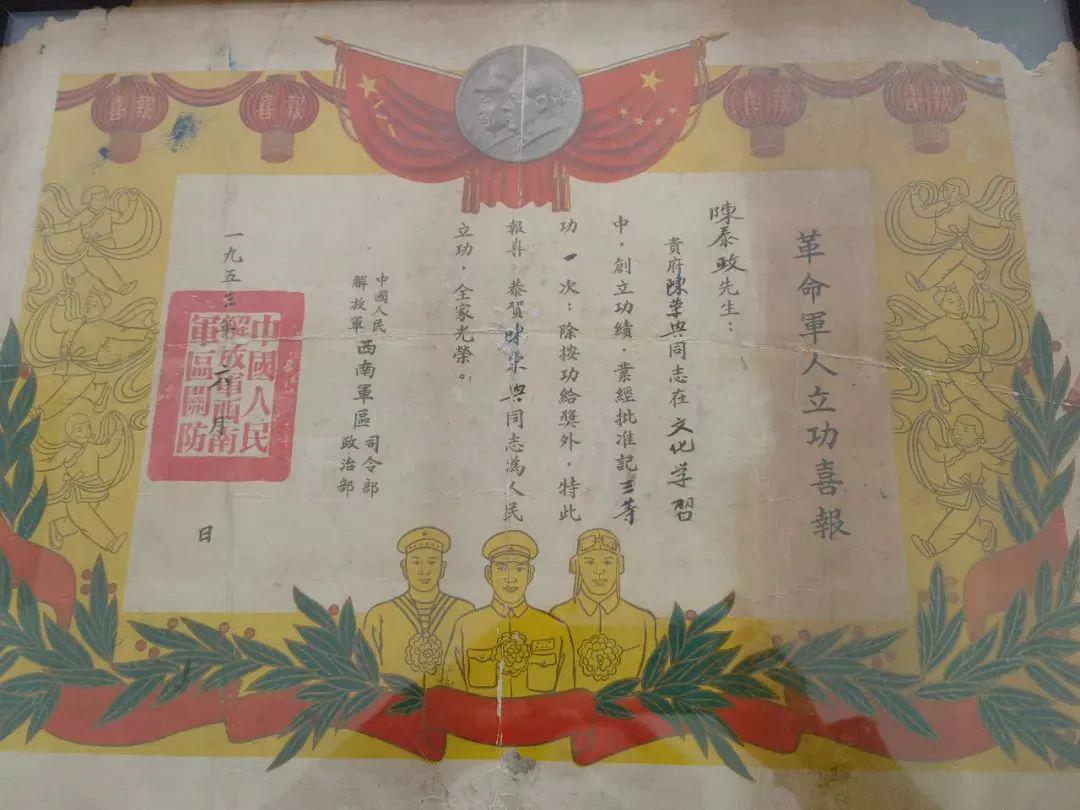 喜報
喜報
喜報
喜報
革命軍人立功喜報
陳泰政先生：
貴府陳荣與同志在文化学習
中，創立功績，業經批准記三等
功一次；除按功給獎外，特此
報喜，恭賀陳荣與同志為人民
立功，全家光榮。
中國人民
解放軍
西南軍區
司令部
政治部
一九五三年六月 日
中國人民
解放軍西南
軍區關防